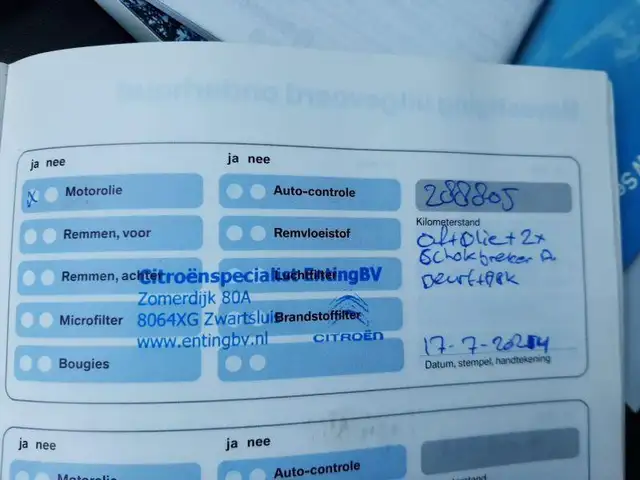 ja nee
ja nee
Motorolie
Auto-controle
288805
Kilometerstand
Remmen, voor
Remvloeistof
Remmen, achter
Luchtfilter
Microfilter
Brandstoffilter
Bougies
Citroënspecialist EntingBV
Zomerdijk 80A
8064XG Zwartsluis
www.entingbv.nl
CITROËN
olie + 2x
Schokbreker A.
17-7-2024
Datum, stempel, handtekening
ja nee
ja nee
Motorolie
Auto-controle